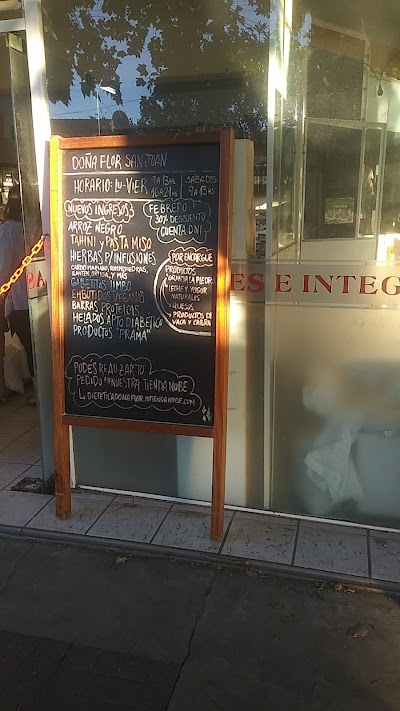 DOÑA FLOR SAN JUAN
HORARIO: LU-VIER 9 A 13 HS SABADOS
16 A 21 HS 9 A 13 HS
NUEVOS INGRESOS
ARROZ NEGRO
TAHINI y PASTA MISO
HIERBAS P/INFUSIONES
CARDO MARIANO, ROMPEPIEDRAS,
LLANTEN, ORTIGA, y MAS
EMBUTIDOS VEGANOS
BARRAS PROTEICAS
HELADOS APTO DIABÉTICO
PRODUCTOS "PRAMA"
FEBRERO
30% DESCUENTO
CUENTA DNI
POR ENCARGUE
PRODUCTOS
GRANJA LA PIEDR
LECHE y YOGUR
NATURALES
QUESOS
PRODUCTOS DE
VACA y CABRA
PODÉS REALIZAR TU
PEDIDO EN NUESTRA TIENDA NUBE
DIETETICADONAFLOR.MITIENDANUBE.COM
ES E INTEG